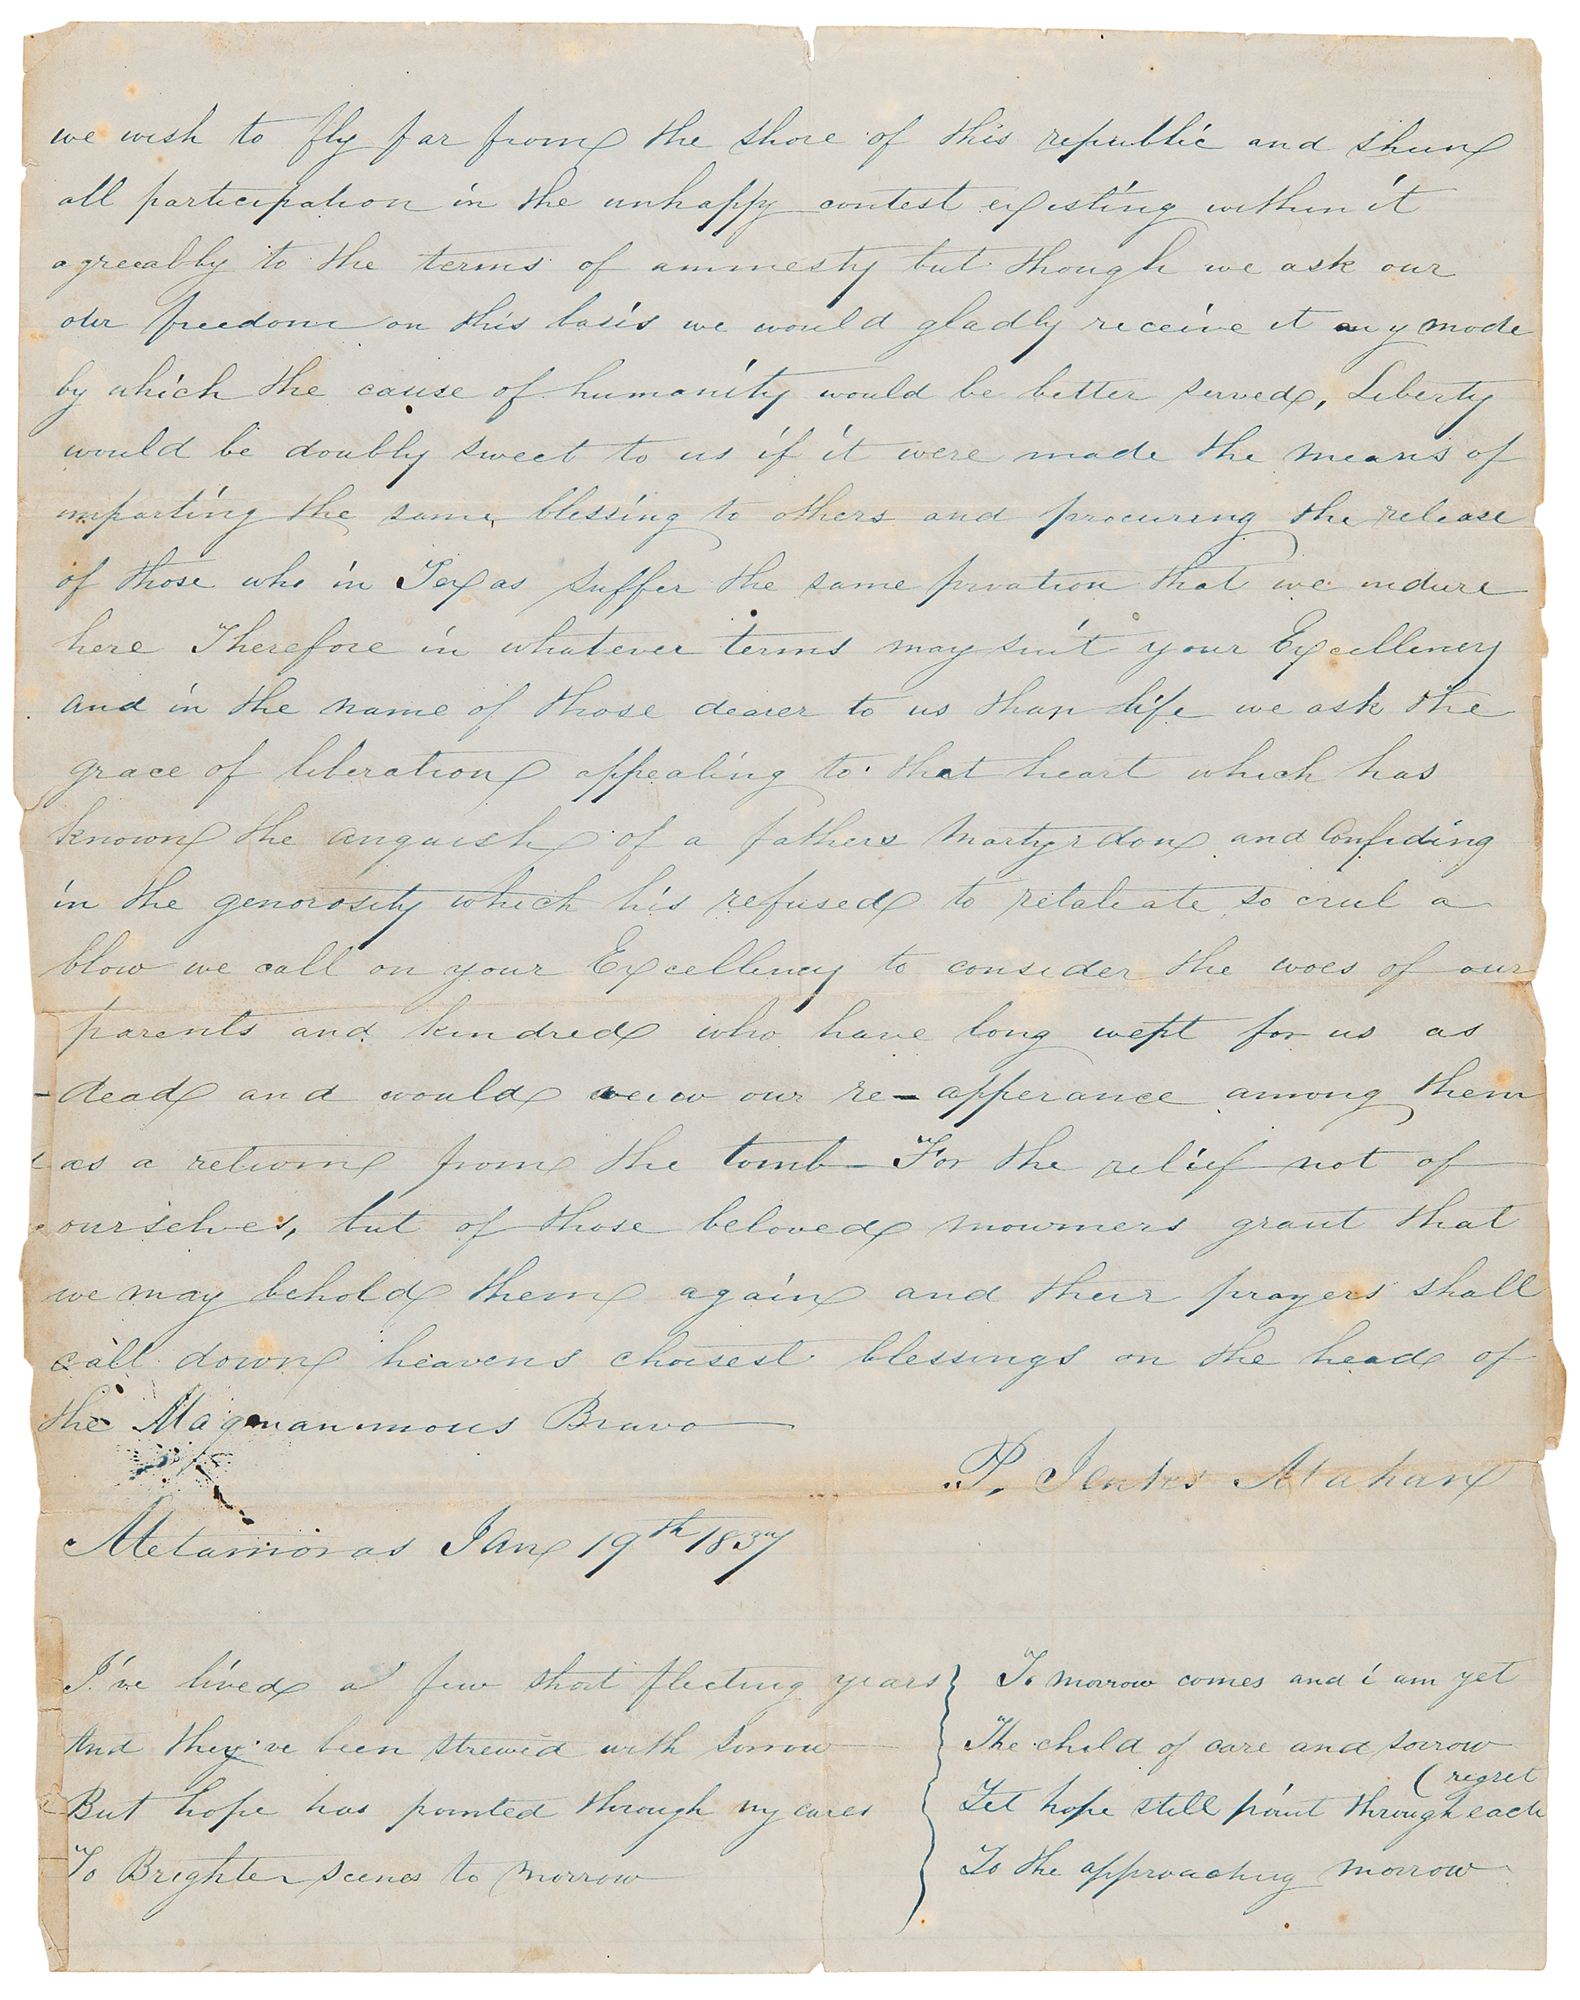 we wish to fly far from the shore of this republic and shun
all participation in the unhappy contest existing within it
agreeably to the terms of ammesty but though we ask our
our freedom on this basis we would gladly receive it any mode
by which the cause of humanity would be better served, Liberty
would be doubly sweet to us if it were made the means of
imparting the same blessing to others and procuring the release
of those who in Texas suffer the same privation that we indure
here Therefore in whatever terms may suit your Excellency
and in the name of those dearer to us than life we ask the
grace of liberation appealing to that heart which has
known the anguish of a fathers Martyrdom and Confiding
in the generosity which his refused to retaliate so cruel a
blow we call on your Excellency to consider the woes of our
parents and kindred who have long wept for us as
dead and would veiw our re-apperance among them
as a return from the tomb - For the relief not of
ourselves, but of those beloved mourners grant that
we may behold them again and their prayers shall
call down heavens choisest blessings on the head of
the Magnanimous Bravo
P. Jenks Mahan
Metamoras Jan 19th 1837
I've lived a few short fleeting years
And they've been strewed with sorrow
But hope has pointed through my cares
To Brighter scenes to morrow
To morrow comes and i am yet
The child of care and sorrow
Yet hope still point through each (regret
To the approaching morrow